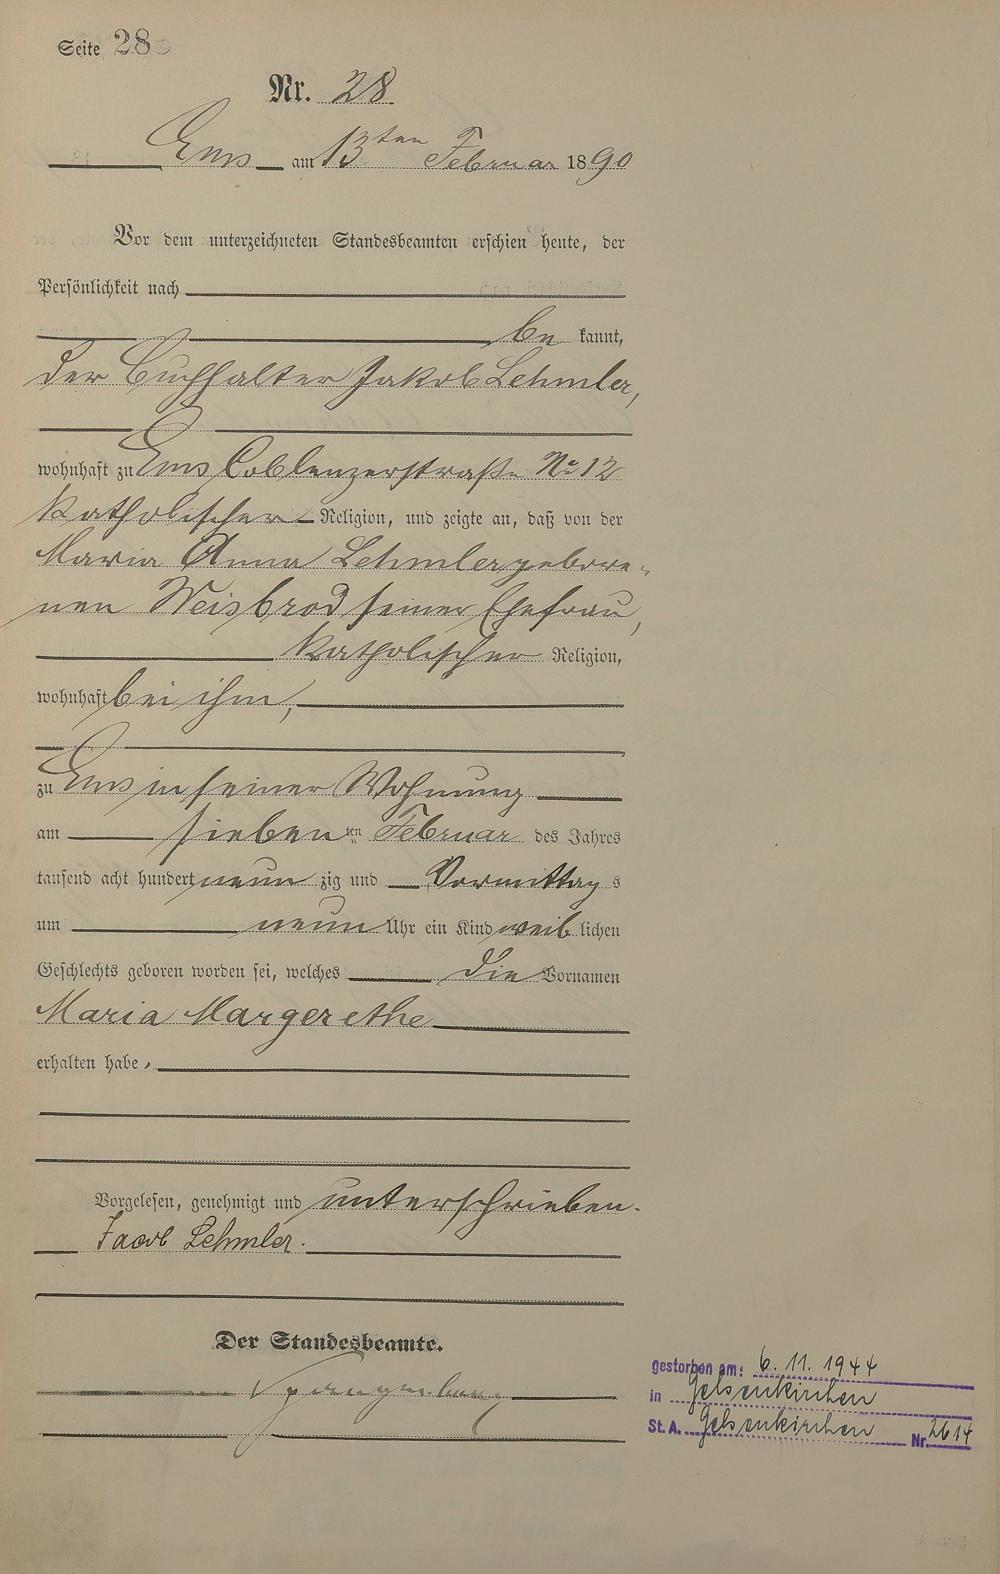 Seite 28
Nr. 28
Ems am 13ten Februar 1890
Vor dem unterzeichneten Standesbeamten erschien heute, der
Persönlichkeit nach
be kannt,
der Buchhalter Jakob Lehmler,
wohnhaft zu Ems Coblenzerstraße No 12
katholischer Religion, und zeigte an, daß von der
Maria Anna Lehmler gebore-
nen Weisbrod seiner Ehefrau,
katholischer Religion,
wohnhaft bei ihm,
zu Ems in seiner Wohnung
am sieben ten Februar des Jahres
tausend acht hundert neun zig und Vormittag s
um neun Uhr ein Kind weib lichen
Geschlechts geboren worden sei, welches die Vornamen
Maria Margerethe
erhalten habe.
Vorgelesen, genehmigt und unterschrieben.
Jacob Lehmler.
Der Standesbeamte.
gestorben am: 6. 11. 1944
in Gelsenkirchen
St. A. Gelsenkirchen Nr. 2614